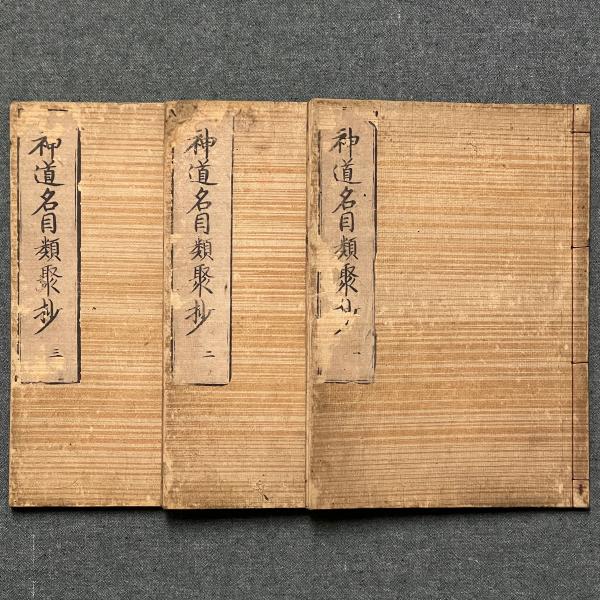 神道名目類聚抄 一
神道名目類聚抄 二
神道名目類聚抄 三